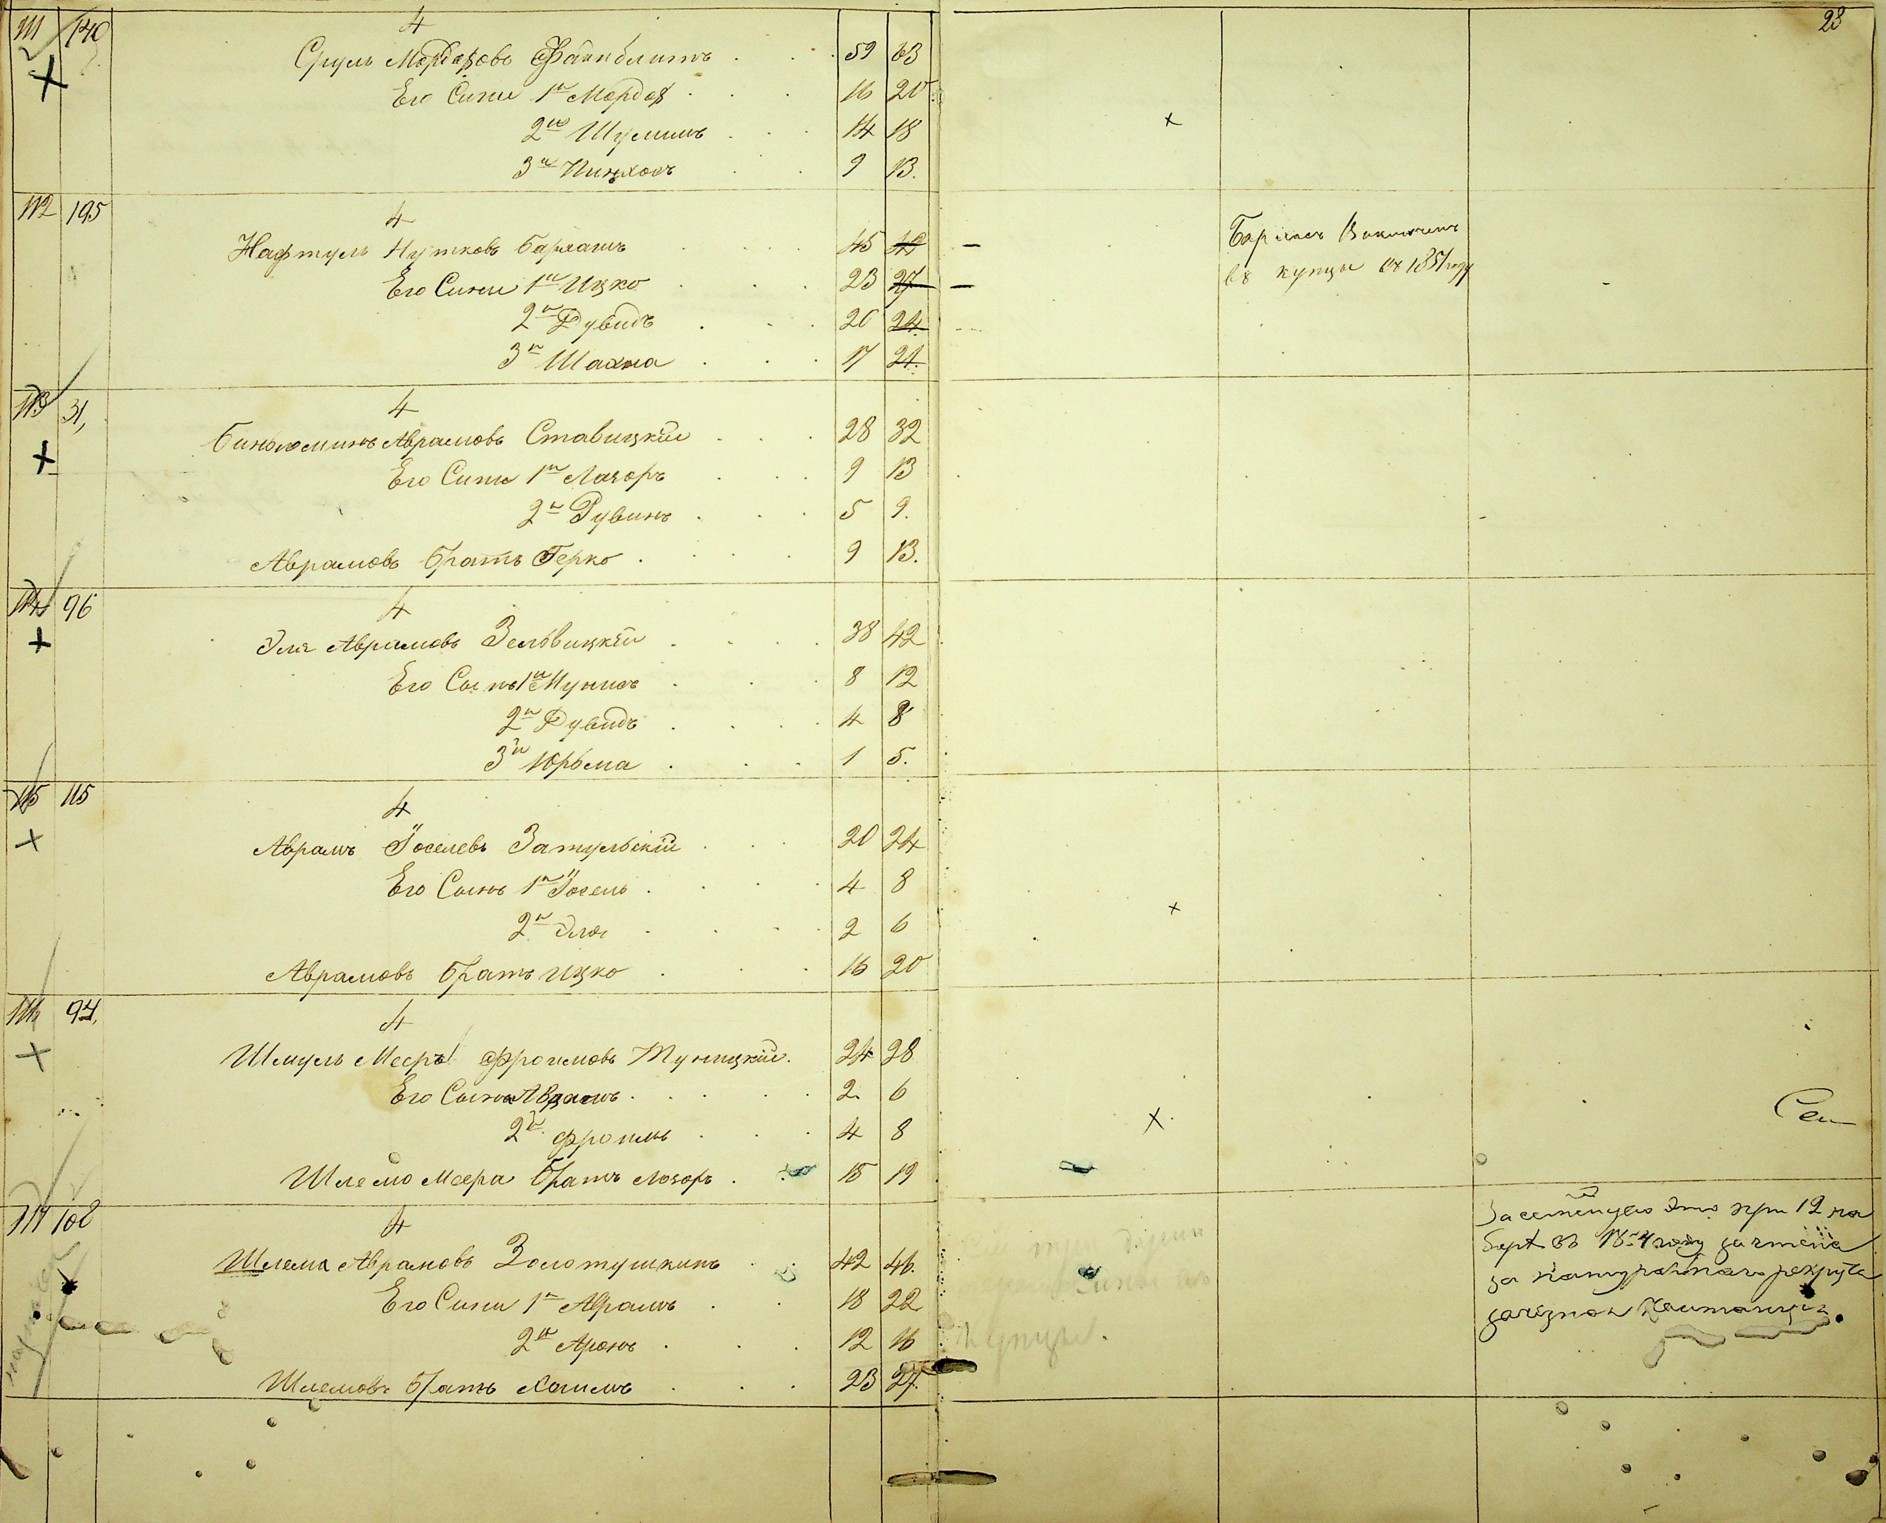 23
111 140
4
Сруль Мордковъ Файнблитъ 59 63
Его Сыны 1й Мордко 16 20
2й Шулимъ 14 18
3й Пинхосъ 9 13.
112 195
4
Нафтуль Нутковъ Бархашъ 45 49
Его Сыны 1й Ицко 23 27
2й Дувидъ 20 24
3й Шахна 17 21.
въ купцы съ 1851 году
113 31,
4
Биньоминъ Аврамовъ Ставицкій 28 32
Его Сыны 1й Лазоръ 9 13
2й Рувинъ 5 9.
Аврамовъ братъ Герко 9 13.
114 96
4
Эля Аврамовъ Зельвицкій 38 42
Его Сынъ 1й Мунишъ 8 12
2й Дувидъ 4 8
3й Юрьма 1 5.
115 115
4
Аврамъ Іоселевъ Затульскій 20 24
Его Сынъ 1й Іосель 4 8
2й Эля 2 6
Аврамовъ братъ Ицко 16 20
116 94,
4
Шмуль Мееръ Фроимовъ Туницкій. 24 28
Его Сынъ Абрамъ 2 6
2й Фроимъ 4 8
Меера братъ Лозоръ 15 19
117 108
4
Шлема Аврамовъ Золотушкинъ 42 46.
Его Сыны 1й Абрамъ 18 22
2й Аронъ 12 16
Шлемовъ братъ Хаимъ 23 27.
при 12 на
борѣ въ 1854 году
за рекрута
купцы.